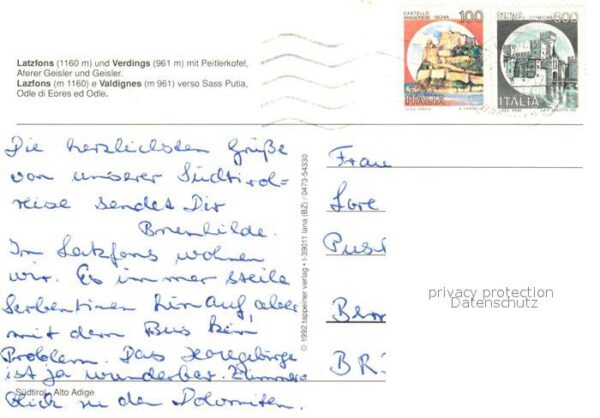 Latzfons (1160 m) und Verdings (961 m) mit Peitlerkofel,
Aferer Geisler und Geisler.
Lazfons (m 1160) e Valdignes (m 961) verso Sass Putia,
Odle di Eores ed Odle.
CASTELLO
ARAGONESE - ISCHIA
100
ITALIA
CASTELLO
600
ITALIA
Die herzlichsten Grüße
von unserer Südtirol-
reise sendet Dir
Brunhilde.
In Latzfons wohnen
wir. Es immer steile
Serbentinen hinauf, aber
mit dem Bus kein
Problem. Das
ist ja wunderbar.
Blick zu den Dolomiten.
Südtirol - Alto Adige
© 1992 tappeiner verlag • I-39011 lana (BZ) / 0473-54330
Frau
Lore
privacy protection
Datenschutz